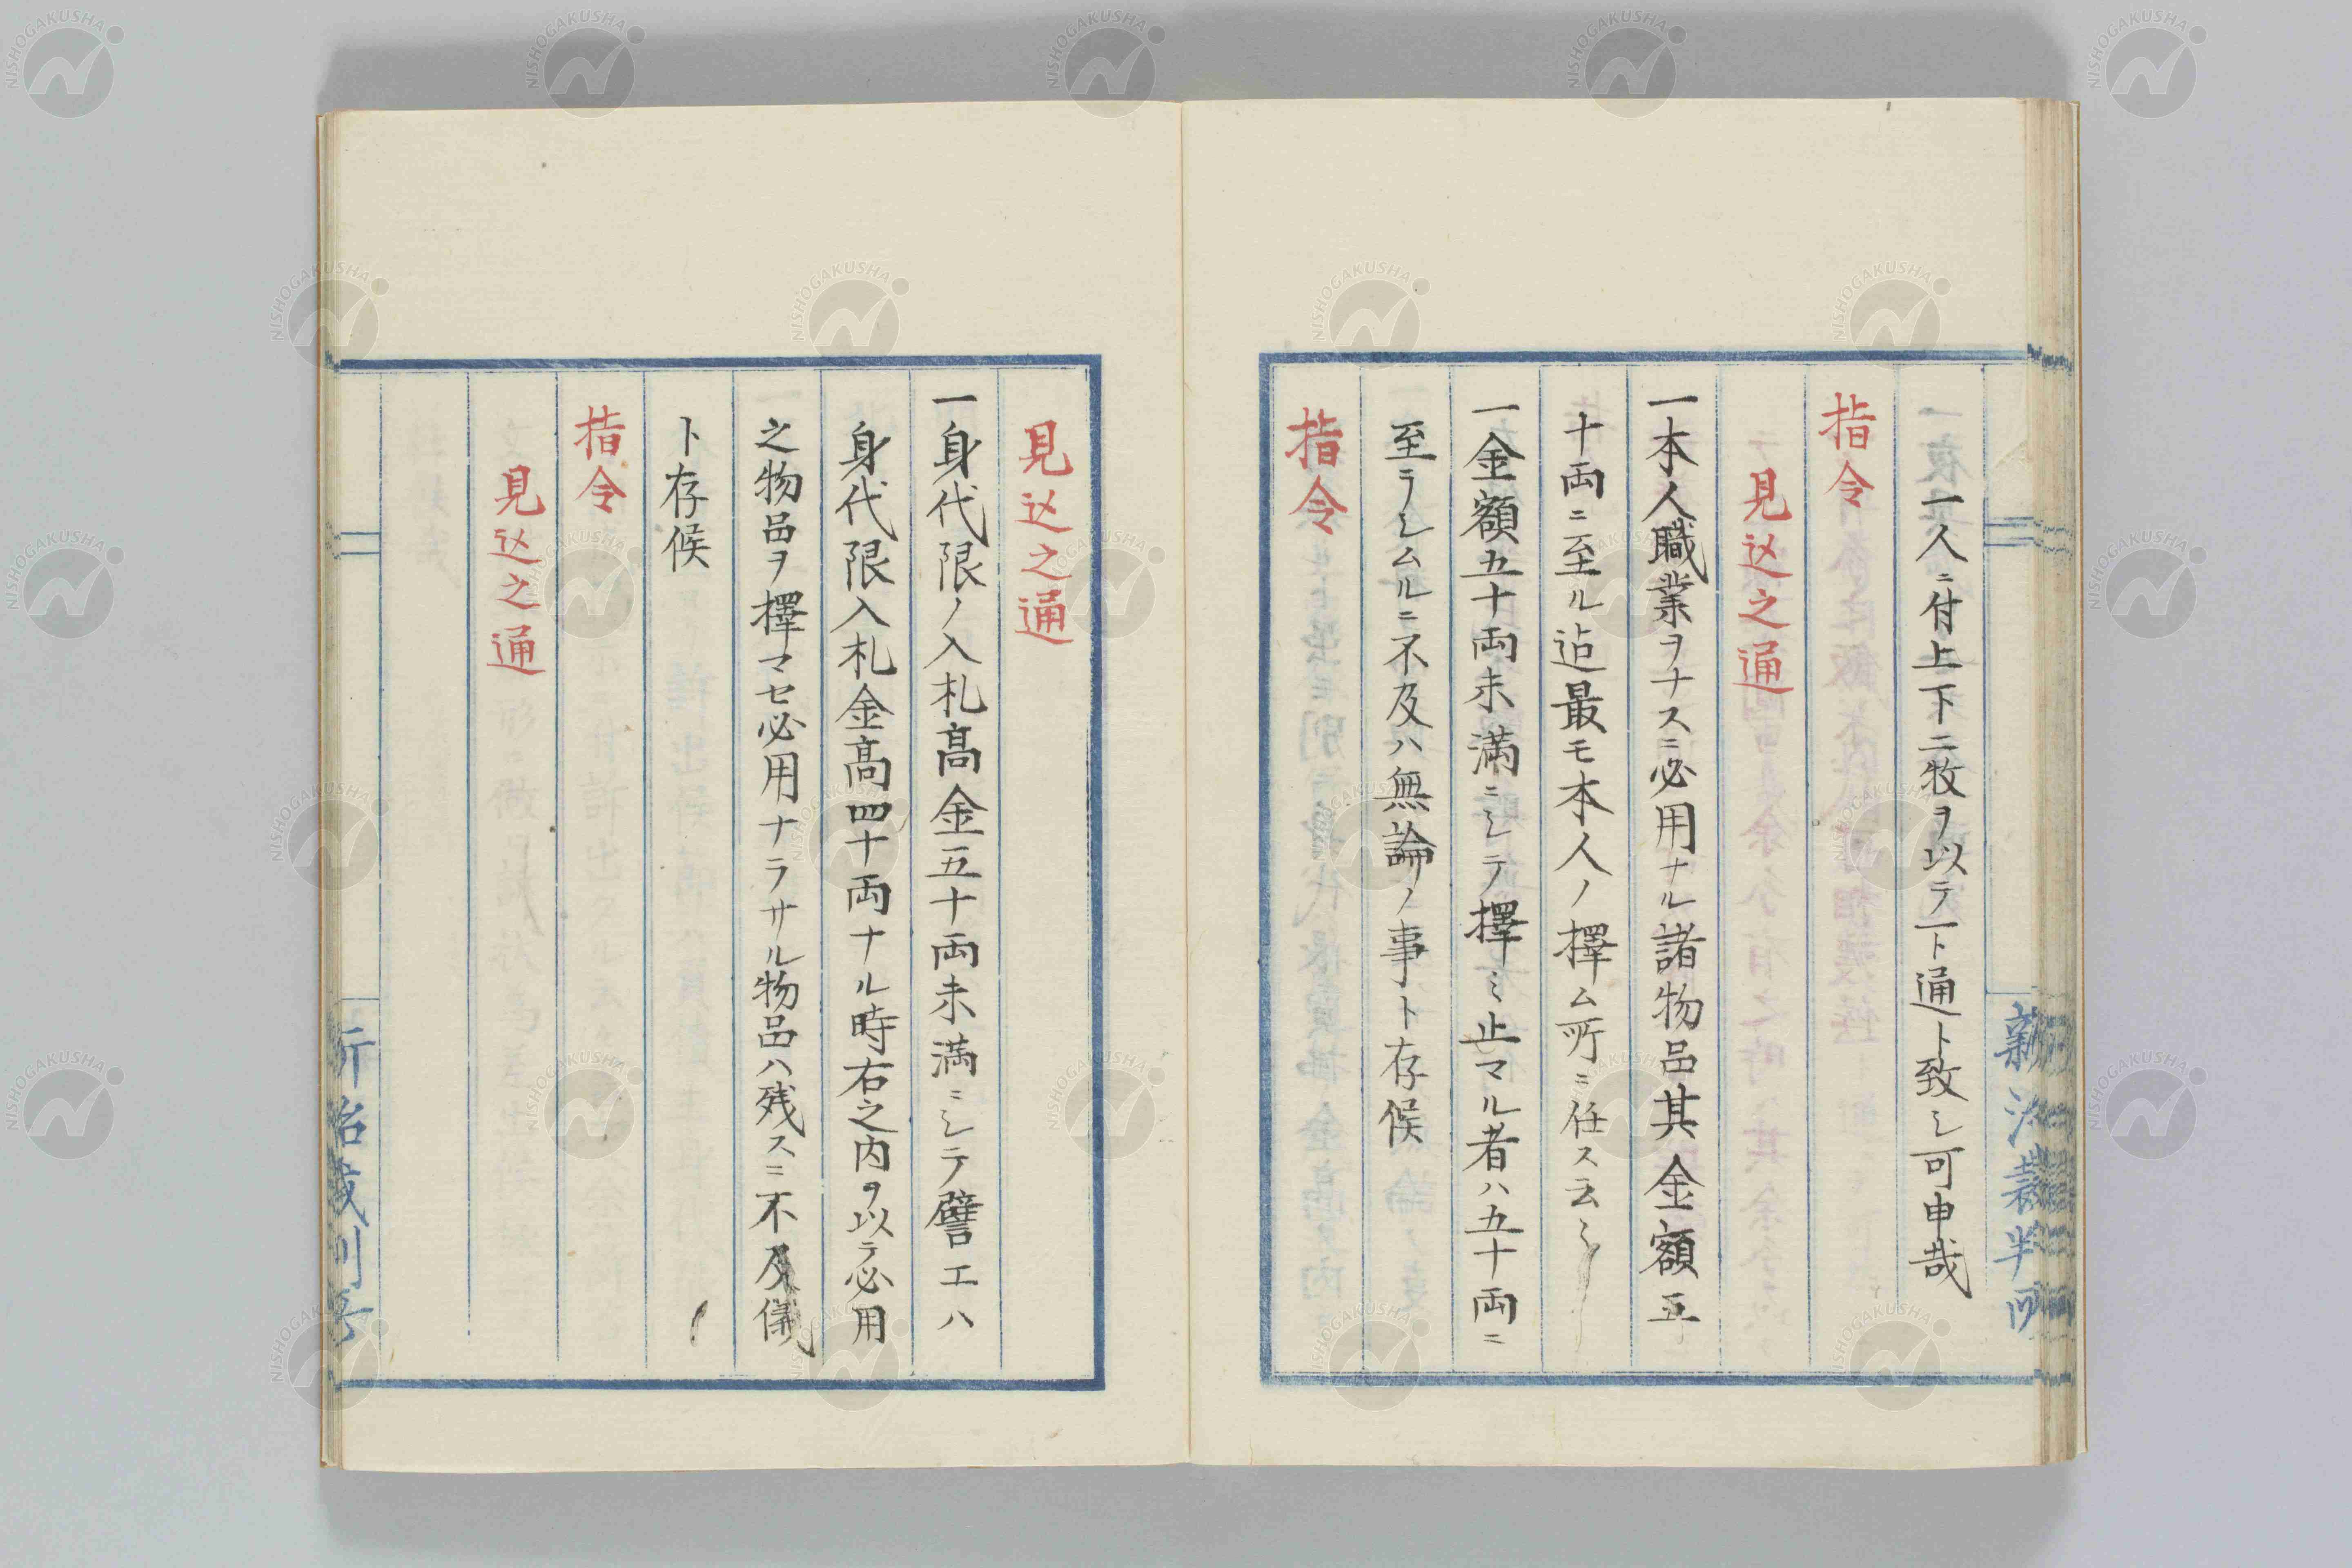 一人ニ付上下二牧ヲ以テ一ト通ト致シ可申哉
指令
見込之通
一本人職業ヲナスニ必用ナル諸物品其金額五
十両ニ至ル迠最モ本人ノ擇ム所ニ任ス云〻
一金額五十両未満ニシテ擇ミ止マル者ハ五十両ニ
至ラシムルニ不及ハ無論ノ事ト存候
指令
見込之通
一身代限ノ入札髙金五十両未満ニシテ譬エハ
身代限入札金髙四十両ナル時右之内ヲ以テ必用
之物品ヲ擇マセ必用ナラサル物品ハ残スニ不及儀
ト存候
指令
見込之通
NISHOGAKUSHA